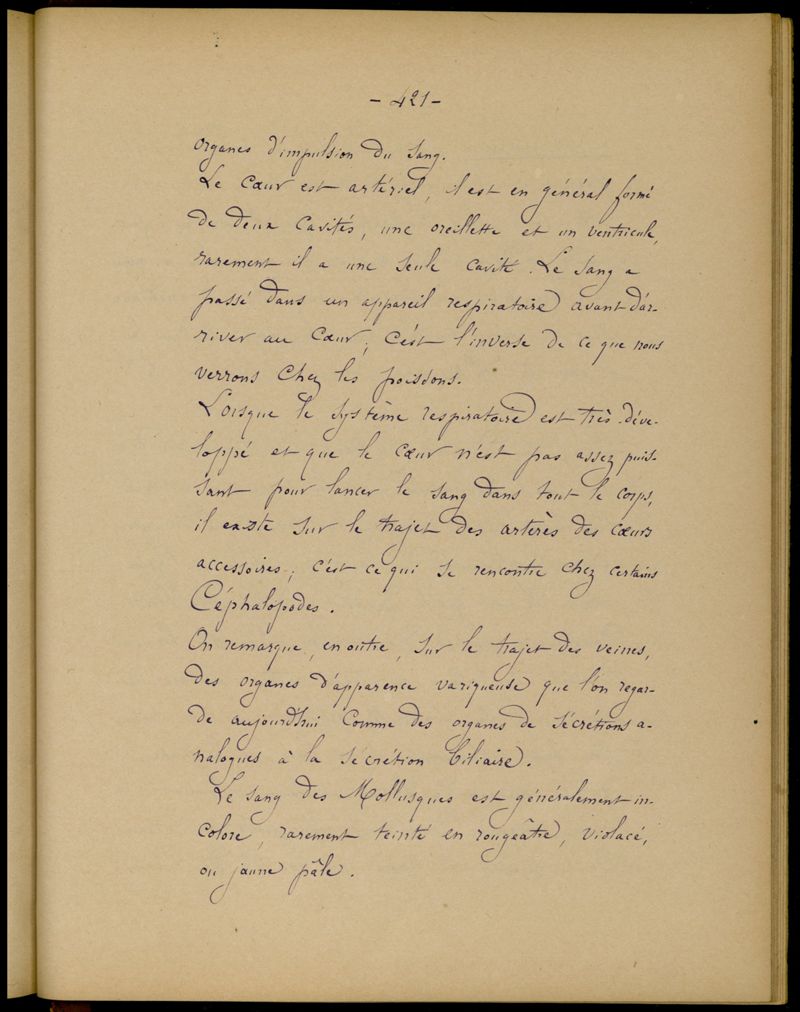 - 421 -
organes d'impulsion du sang.
Le Cœur est artériel, il est en général formé
de deux cavités, une oreillette et un ventricule,
rarement il a une seule cavité. Le sang a
passé dans un appareil respiratoire avant d'ar-
river au Cœur; c'est l'inverse de ce que nous
verrons chez les poissons.
Lorsque le système respiratoire est très-déve-
loppé et que le cœur n'est pas assez puis-
sant pour lancer le sang dans tout le corps,
il existe sur le trajet des artères des cœurs
accessoires; c'est ce qui se rencontre chez certains
Céphalopodes.
On remarque, en outre, sur le trajet des veines,
des organes d'apparence variqueuse que l'on regar-
de aujourd'hui comme des organes de sécrétions a-
nalogues à la sécrétion biliaire.
Le sang des Mollusques est généralement in-
colore, rarement teinté en rougeâtre, violacé,
ou jaune pâle.